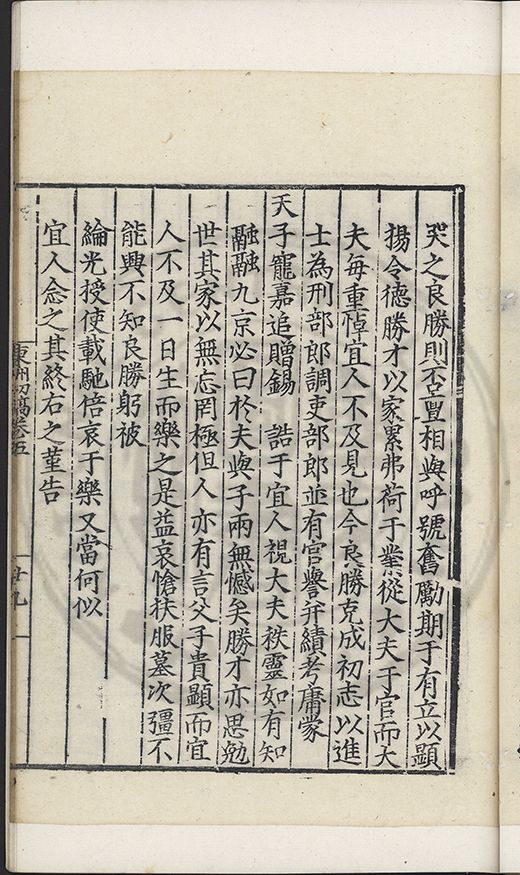 哭之良勝則否亶相與呼號奮勵期于有立以顯
揚令德勝才以家累弗荷于業從大夫于官而大
夫每重悼宜人不及見也今良勝克成初志以進
士為刑部郎調吏部郎並有官譽幷績考庸蒙
天子寵嘉追贈錫 誥于宜人視大夫秩靈如有知
融融九京必曰於夫與子兩無憾矣勝才亦思勉
世其家以無忘罔極但人亦有言父子貴顯而宜
人不及一日生而樂之是益哀愴扶服墓次彊不
能興不知良勝躬被
綸光授使載馳倍哀于樂又當何似
宜人念之其終右之堇告
東洲初稿卷五
廿九